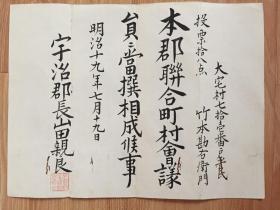 大宅村七拾壱番戸平民
投票拾八点 竹本勘右衛門
本郡聯合町村会議
員ニ当撰相成候事
明治十九年七月十九日
宇治郡長山田親良